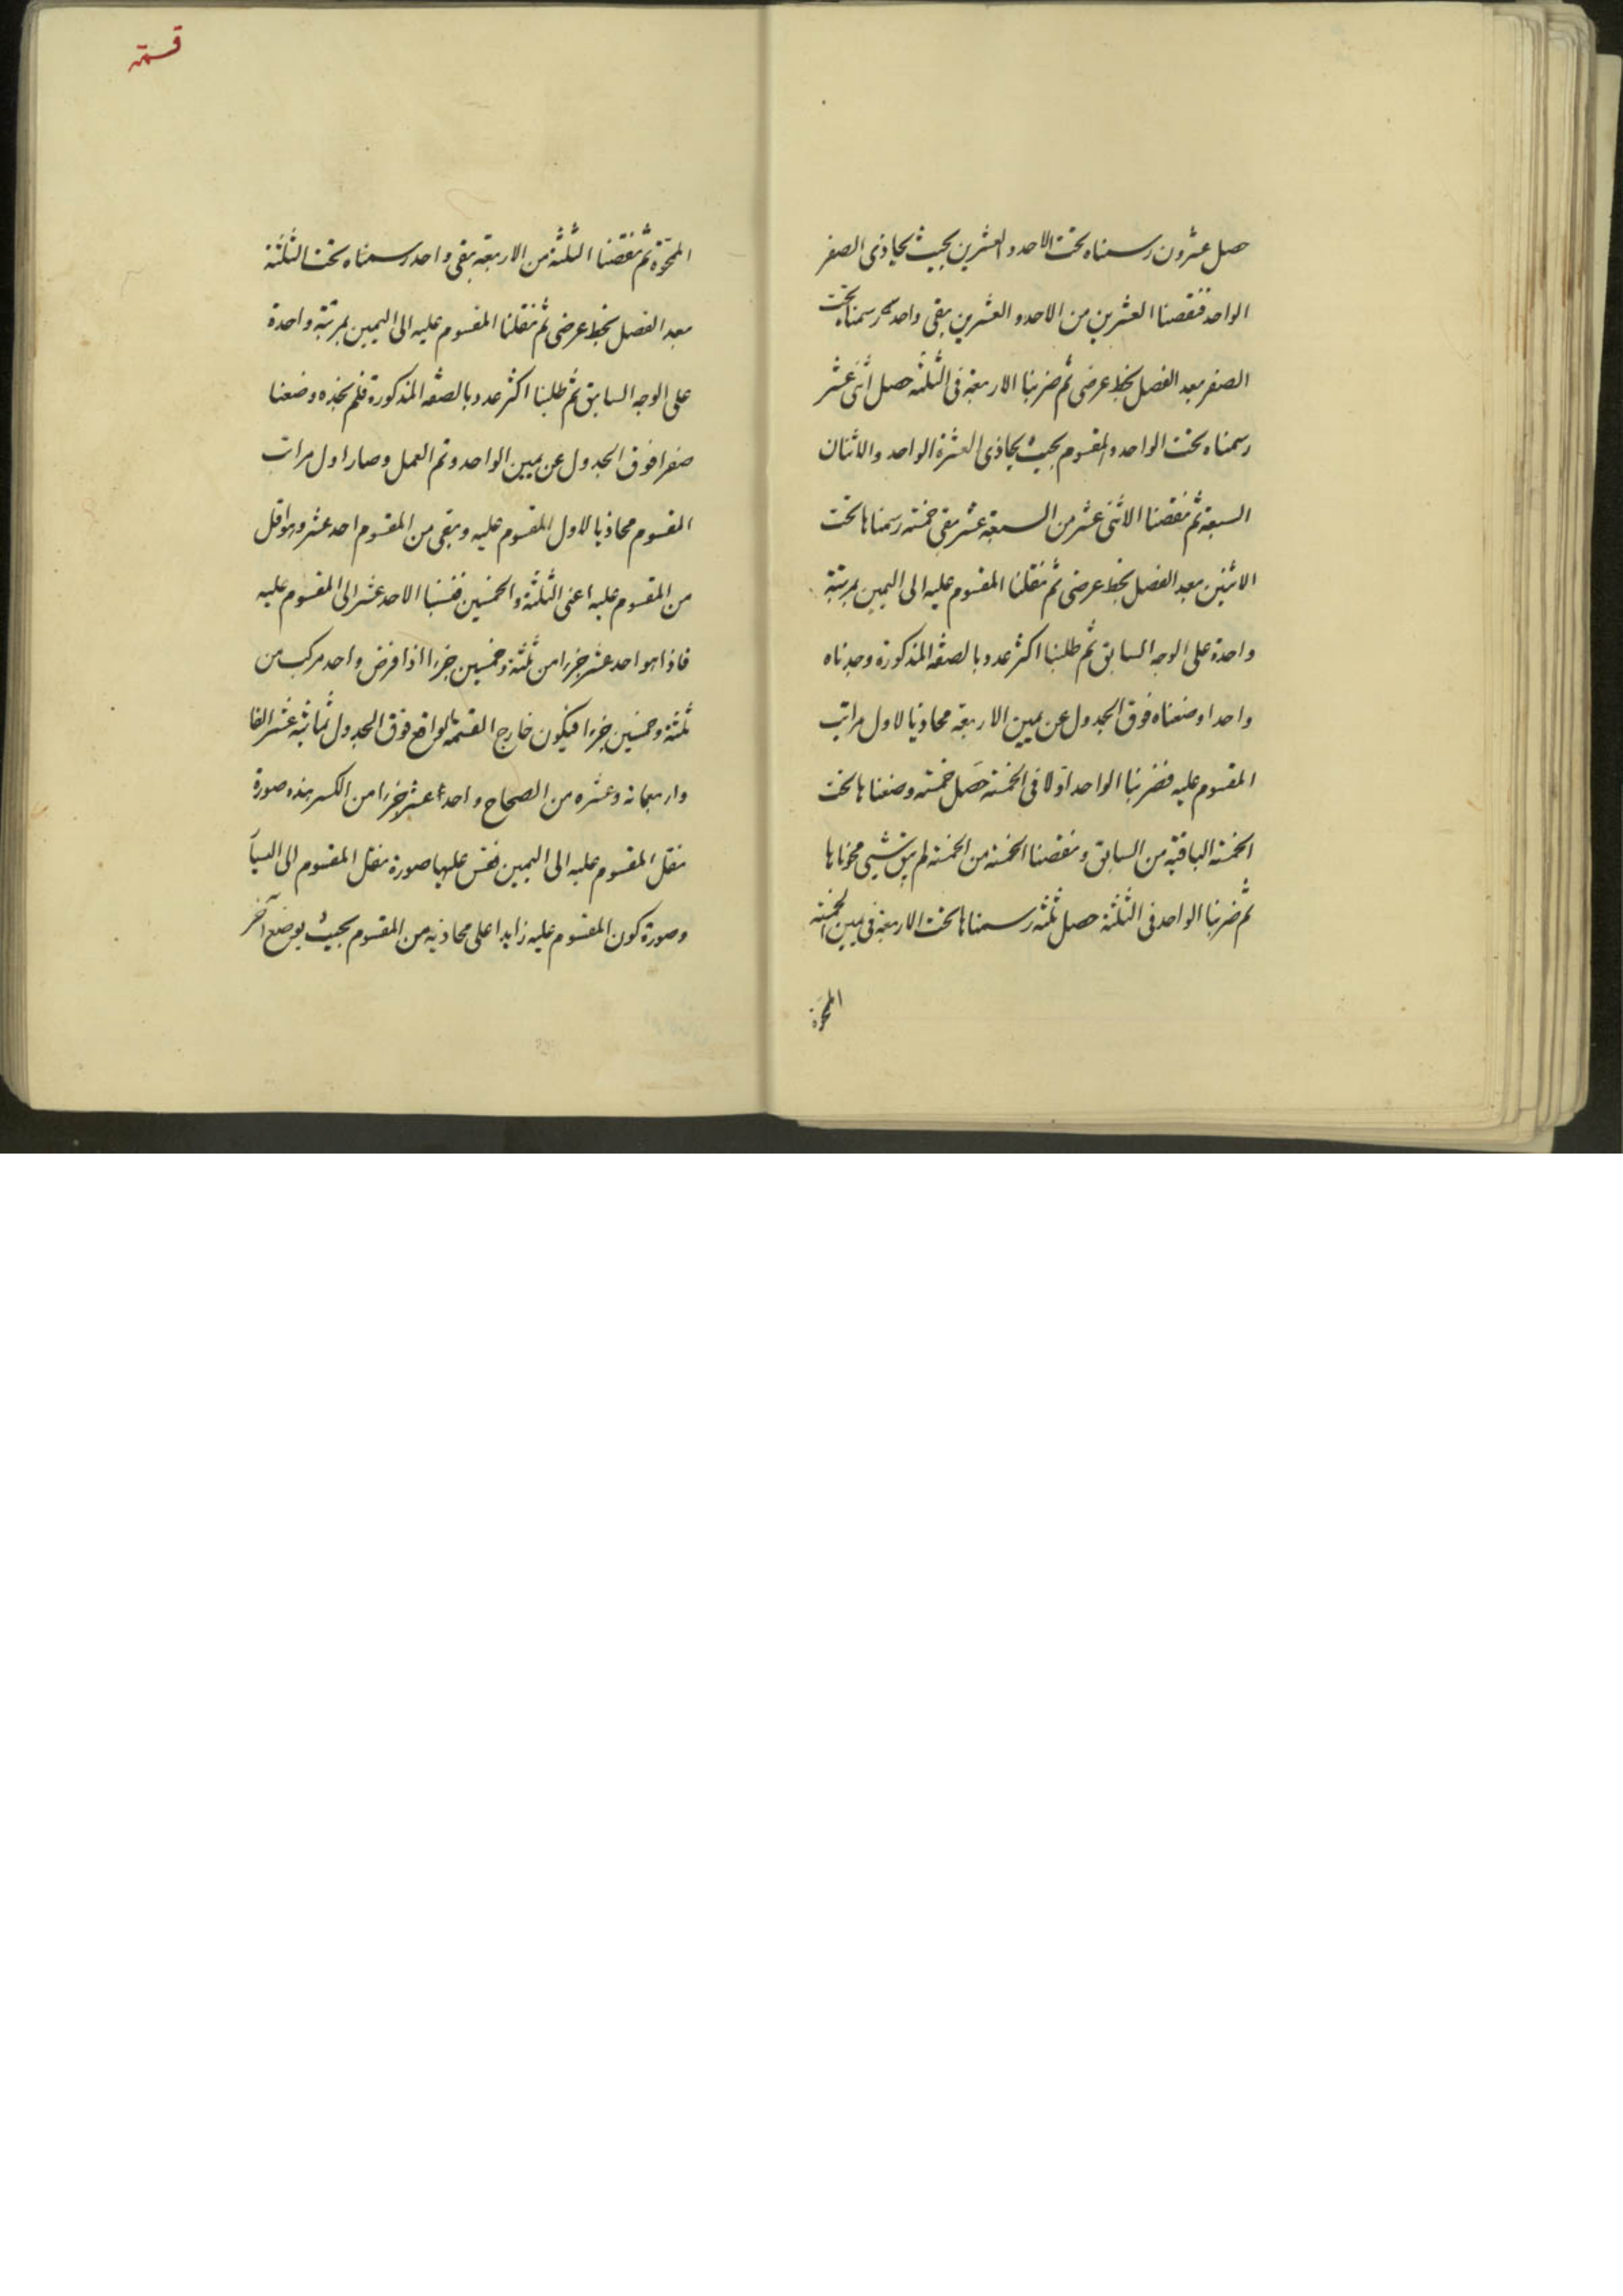 حصل عشرون رسمناه تحت الاحد والعشرين بحيث يحاذى الصفر
الواحد فنقصنا العشرين من الاحد والعشرين بقى واحد رسمناه تحت
الصفر بعد الفصل بخط عرضى ثم ضربنا الاربعة فى الثلثة حصل اثنى عشر
رسمناه تحت الواحد والمقسوم بحيث يحاذى العشرة الواحد والاثنان
السبعة ثم نقصنا الاثنى عشر من السبعة عشر بقى خمسة رسمناها تحت
الاثنين بعد الفصل بخط عرضى ثم نقلنا المقسوم عليه الى اليمين بمرتبة
واحدة على الوجه السابق ثم طلبنا اكثر عدد بالصفة المذكورة وجدناه
واحدا وضعناه فوق الجدول عن يمين الاربعة محاذيا لاول مراتب
المقسوم عليه فضربنا الواحد اولا فى الخمسة حصل خمسة وضعناها تحت
الخمسة الباقية من السابق ونقصنا الخمسة من الخمسة لم يبق شيئ محوناها
ثم ضربنا الواحد فى الثلثة حصل ثلثة رسمناها تحت الاربعة فى يمين الخمسة
المحوة
قسمة
المحوة ثم نقصنا الثلثة من الاربعة بقى واحد رسمناه تحت الثلثة
بعد الفصل بخط عرضى ثم نقلنا المقسوم عليه الى اليمين بمرتبة واحدة
على الوجه السابق ثم طلبنا اكثر عدد بالصفة المذكورة فلم نجده وضعنا
صفرا فوق الجدول عن يمين الواحد وتم العمل وصار اول مراتب
المقسوم محاذيا لاول المقسوم عليه وبقى من المقسوم احد عشر وهو اقل
من المقسوم عليه اعنى الثلثة والخمسين فنسبنا الاحد عشر الى المقسوم عليه
فاذا هو احد عشر جزءا من ثلثة وخمسين جزءا اذا فرض واحد مركب من
ثلثة وخمسين جزءا فيكون خارج القسمة الواقع فوق الجدول ثمانية عشر الفا
واربعمائة وعشرة من الصحاح واحد عشر جزءا من الكسر هذه صورة
نقل المقسوم عليه الى اليمين فقس عليها صورة نقل المقسوم الى اليسار
وصورة كون المقسوم عليه زايدا على محاذيه من المقسوم بحيث يوضع آخر